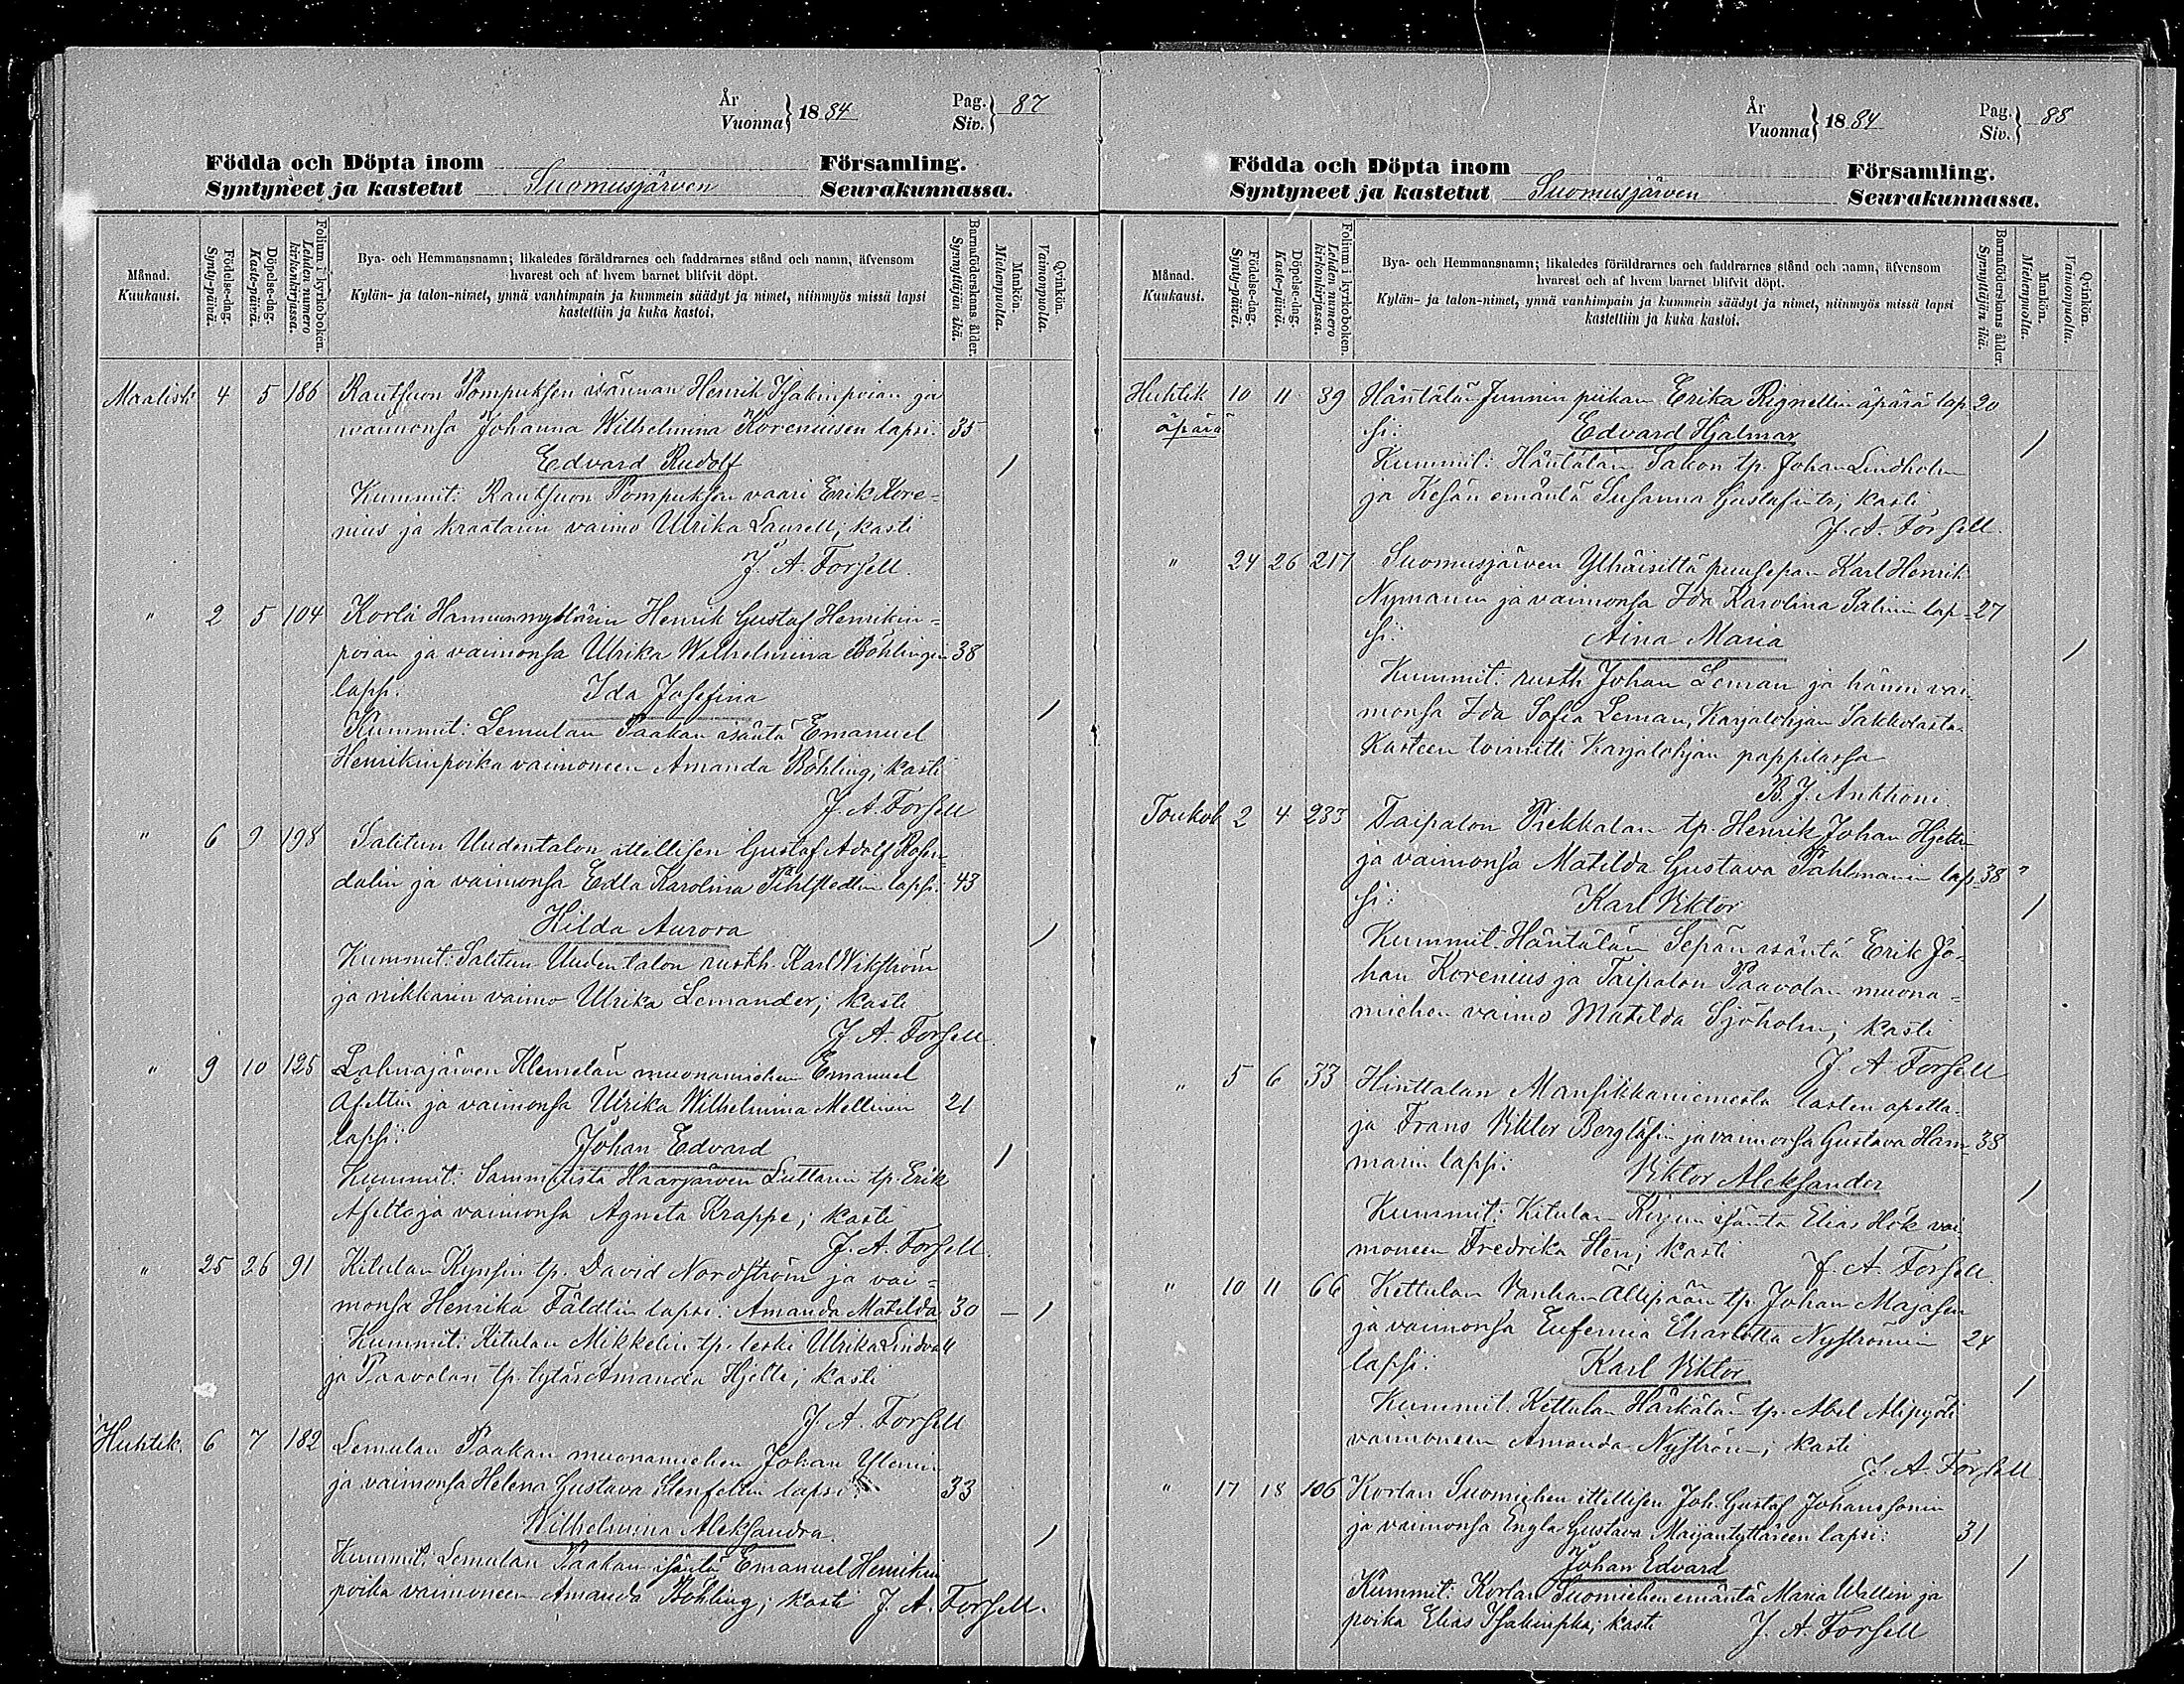 År
Vuonna } 1884
Pag.
Siv. } 87
Födda och Döpta inom Församling.
Syntyneet ja kastetut Suomusjärven Seurakunnassa.
Månad.
Kuukausi.
Födelse-dag.
Synty-päivä.
Döpelse-dag.
Kaste-päivä.
Folium i kyrkoboken.
Lehden numero kirkonkirjassa.
Bya- och Hemmansnamn; likaledes föräldrarnes och faddrarnes stånd och namn, äfvensom
hvarest och af hvem barnet blifvit döpt.
Kylän- ja talon-nimet, ynnä vanhimpain ja kummein säädyt ja nimet, niinmyös missä lapsi
kastettiin ja kuka kastoi.
Barnaföderskans ålder.
Synnyttäjän ikä.
Mankön.
Miehenpuolta.
Qvinkön.
Vaimonpuolta.
Maalisk. 4 5 186 Rautsuon Pompuksen isännän Henrik Isakinpoian ja
vaimonsa Johanna Wilhelmina Koreniusen lapsi: 35
Edvard Rudolf 1
Kummit: Rautsuon Pompuksen vaari Erik Kore=
nius ja kraatarin vaimo Ulrika Laurell; kasti
J. A. Forsell.
" 2 5 104 Korlä Hannun myllärin Henrik Gustaf Henrikin=
poian ja vaimonsa Ulrika Wilhelmina Böhlingin 38
lapsi. Ida Josefina 1
Kummit: Lemulan Paakan isäntä Emanuel
Henrikinpoika vaimoneen Amanda Böhling; kasti
J. A. Forsell
" 6 9 198 Salitun Uudentalon itellisen Gustaf Adolf Rosen=
dalin ja vaimonsa Edla Karolina Pihlstedtin lapsi: 43
Hilda Aurora 1
Kummit: Salitun Uudentalon rusth. Karl Wikström
ja nikkarin vaimo Ulrika Lemander; kasti
J. A. Forsell.
" 9 10 125 Lahnajärven Klemelän muonamiehen Emanuel
Afeltin ja vaimonsa Ulrika Wilhelmina Mellinin 21
lapsi: Johan Edvard 1
Kummit: Sammatista Haarjärven Luttarin tp. Erik
Afelt ja vaimonsa Agneta Krappe; kasti
J. A. Forsell.
" 25 26 91 Kitulan Kynsin tp. David Nordström ja vai=
monsa Henrika Fäldtin lapsi: Amanda Matilda 30 – 1
Kummit: Kitulan Mikkelin tp. leski Ulrika Lindvall
ja Paavolan tp. tytär Amanda Hjelte; kasti
J. A. Forsell
Huhtik. 6 7 182 Lemulan Paakan muonamiehen Johan Ylenin
ja vaimonsa Helena Gustava Stenfeltin lapsi: 33
Wilhelmina Aleksandra 1
Kummit: Lemulan Paakan isäntä Emanuel Henrikin
poika vaimoneen Amanda Böhling; kasti J. A. Forsell.
År
Vuonna } 1884
Pag.
Siv. } 88
Födda och Döpta inom Församling.
Syntyneet ja kastetut Suomusjärven Seurakunnassa.
Månad.
Kuukausi.
Födelse-dag.
Synty-päivä.
Döpelse-dag.
Kaste-päivä.
Folium i kyrkoboken.
Lehden numero kirkonkirjassa.
Bya- och Hemmansnamn; likaledes föräldrarnes och faddrarnes stånd och namn, äfvensom
hvarest och af hvem barnet blifvit döpt.
Kylän- ja talon-nimet, ynnä vanhimpain ja kummein säädyt ja nimet, niinmyös missä lapsi
kastettiin ja kuka kastoi.
Barnaföderskans ålder.
Synnyttäjän ikä.
Mankön.
Miehenpuolta.
Qvinkön.
Vaimonpuolta.
Huhtik 10 11 39 Häntälän Junnin piikan Erika Rignellin äpärä lap 20
äpärä si: Edvard Hjalmar 1
Kummit: Häntälän Sakon tp. Johan Lindholm
ja Kesän emäntä Susanna Gustafintr; kasti
J. A. Forsell.
" 24 26 217 Suomusjärven Ylhäisiltä puusepän Karl Henrik
Nymanin ja vaimonsa Ida Karolina Salinin lap= 27
si: Aina Maria 1
Kummit: rusth. Johan Leman ja hänen vai
monsa Ida Sofia Leman, Karjalohjan Sakkolasta.
Kasteen toimitti Karjalohjan pappilassa
B. J. Anttoni.
Toukok 2 4 233 Taipalon Piekkalan tp. Henrik Johan Hjeltin
ja vaimonsa Matilda Gustava Pahlmanin lap= 38 "
si: Karl Viktor 1
Kummit. Häntälän Sepän isäntä Erik Jo=
han Korenius ja Taipalon Paavolan muona=
miehen vaimo Matilda Sjöholm; kasti
J. A. Forsell
" 5 6 33 Hintalan Mansikkaniemestä lasten opetta-
ja Frans Viktor Berglöfin ja vaimonsa Gustava Ham= 38
marin lapsi: Viktor Aleksander 1
Kummit: Kitulan isäntä Elias Hök vai
moneen Fredrika Sten; kasti J. A. Forsell.
" 10 11 66 Kettulan Vanhan Ällipään tp. Johan Majasen
ja vaimonsa Eufemia Charlotta Nyströmin 24
lapsi: Karl Viktor 1
Kummit. Kettulan Härkälän tp. Abel Alipyöli
vaimoneen Amanda Nyström; kasti
J. A. Forsell.
" 17 18 106 Korlan Suomiehen itellisen Joh. Gustaf Johanssonin
ja vaimonsa Engla Gustava Maijantyttären lapsi: 31
Johan Edvard 1
Kummit: Korlan Suomiehen emäntä Maria Wallin ja
poika Elias Isakinpka; kasti J. A. Forsell